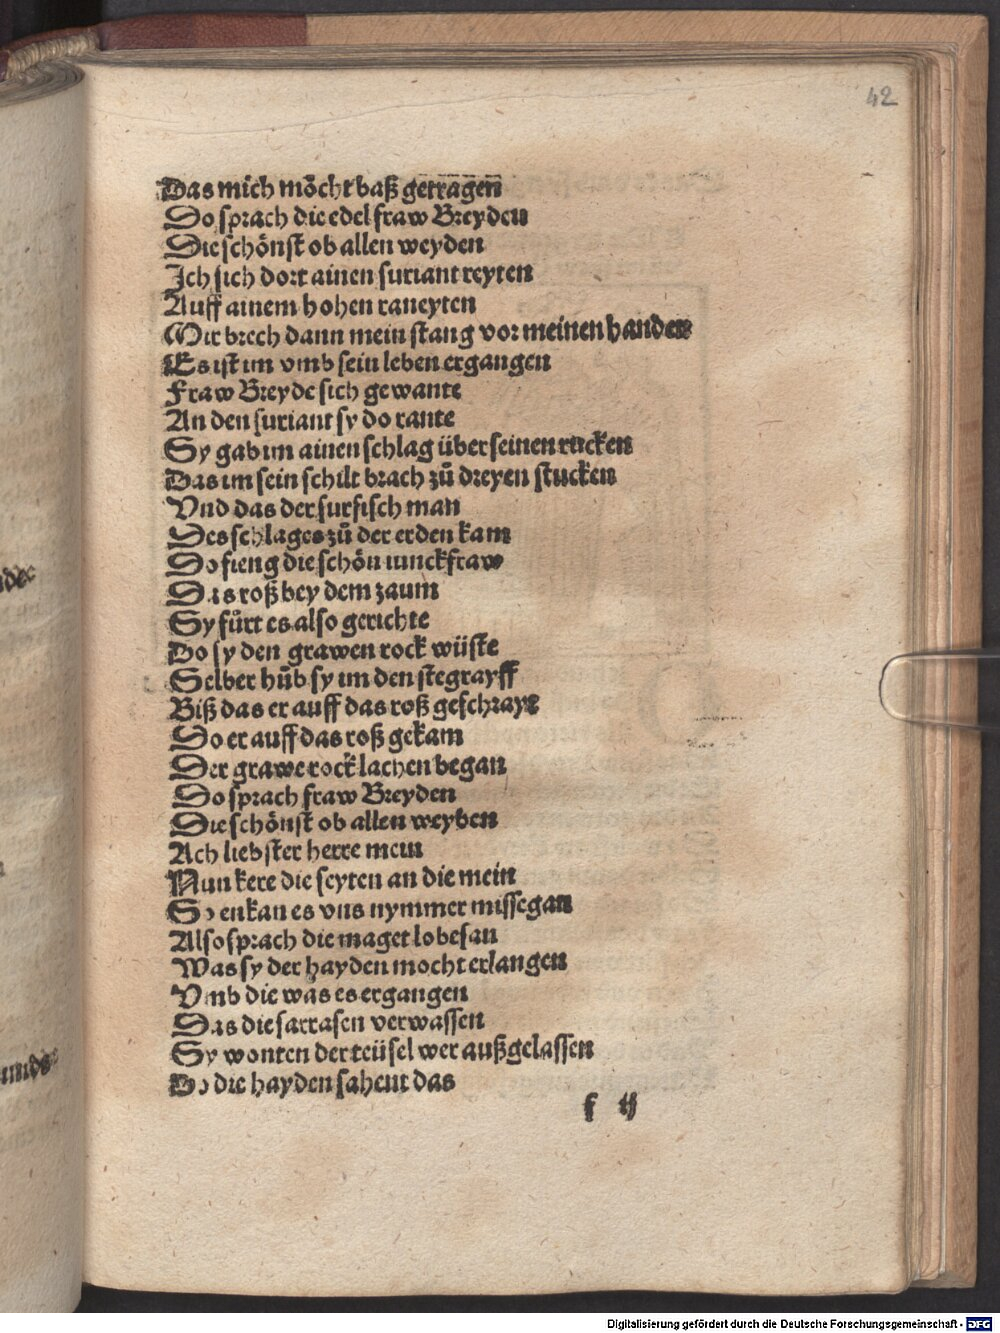 42
Das mich möcht baß getragen
Do sprach die edel fraw Breyden
Die schönst ob allen weyden
Ich sich dort ainen suriant reyten
Auff ainem hohen raneyten
Mir brech dann mein stang vor meinen handen
Es ist im vmb sein leben ergangen
Fraw Breyde sich gewante
An den suriant sy do rante
Sy gab im ainen schlag über seinen rucken
Das im sein schilt brach zů dreyen stucken
Vnd das der surfisch man
Des schlages zů der erden kam
Do fieng die schön iunckfraw
Das roß bey dem zaum
Sy fůrt es also gerichte
Do sy den grawen rock wüste
Selber hůb sy im den stegrayff
Biß das er auff das roß geschrayt
Do er auff das roß gekam
Der grawe rock lachen began
Do sprach fraw Breyden
Die schönst ob allen weyben
Ach liebster herre mein
Nun kere die seyten an die mein
So enkan es vns nymmer missegan
Also sprach die maget lobesan
Was sy der hayden mocht erlangen
Vmb die was es ergangen
Das die sarrasen verwassen
Sy wonten der teüfel wer außgelassen
Do die hayden sahent das
f ij
Digitalisierung gefördert durch die Deutsche Forschungsgemeinschaft - DFG